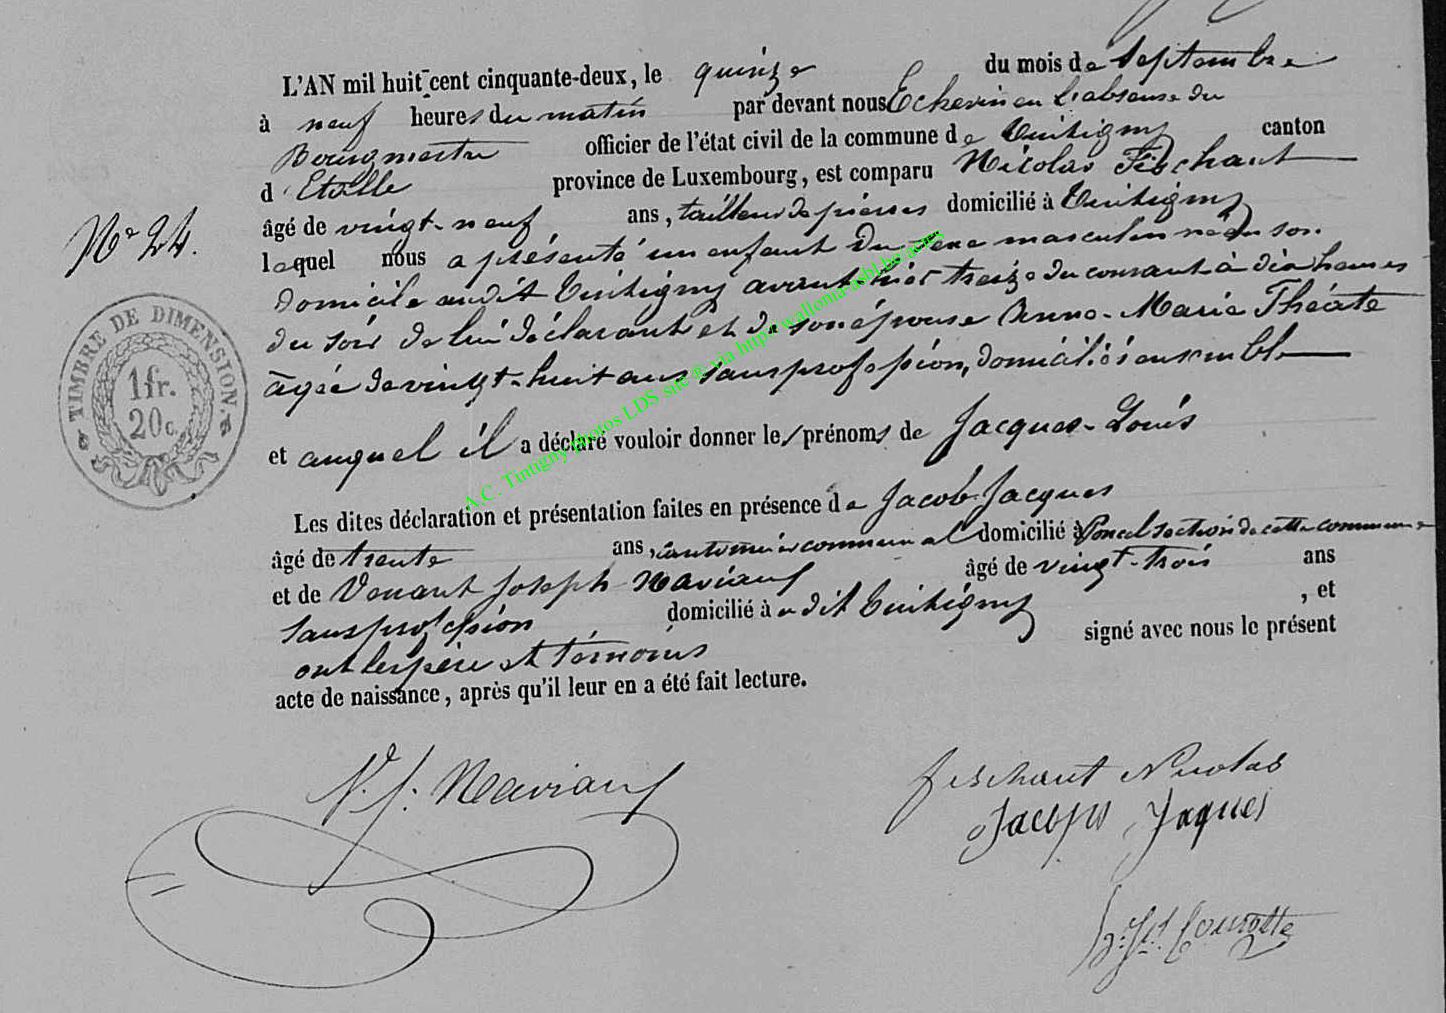 L'AN mil huit-cent cinquante-deux, le quinze du mois de Septembre
à neuf heures du matin par devant nous Echevin en l'absence du
Bourgmestre officier de l'état civil de la commune de Tintigny canton
d'Etalle province de Luxembourg, est comparu Nicolas Fischaut
âgé de vingt-neuf ans, tailleur de pierres domicilié à Tintigny
N° 24.
lequel nous a présenté un enfant du sexe masculin né en son
domicile audit Tintigny avant hier treize du courant à dix heures
du soir de lui déclarant et de son épouse Anne-Marie Théate
âgée de vingt-huit ans sans profession, domiciliés ensemble
et auquel il a déclaré vouloir donner les prénoms de Jacques-Louis
TIMBRE DE DIMENSION.
1fr.
20c.
A.C. Tintigny photos LDS site via http://wallonia-asbl.be
Les dites déclaration et présentation faites en présence de Jacob Jacques
âgé de trente ans, cantonnier communal domicilié à Poncel section de cette commune
et de Venant Joseph Maviauf âgé de vingt-trois ans
sans profession domicilié à audit Tintigny, et
ont les père et témoins signé avec nous le présent
acte de naissance, après qu'il leur en a été fait lecture.
V. J. Maviauf
fischaut Nicolas
Jacques